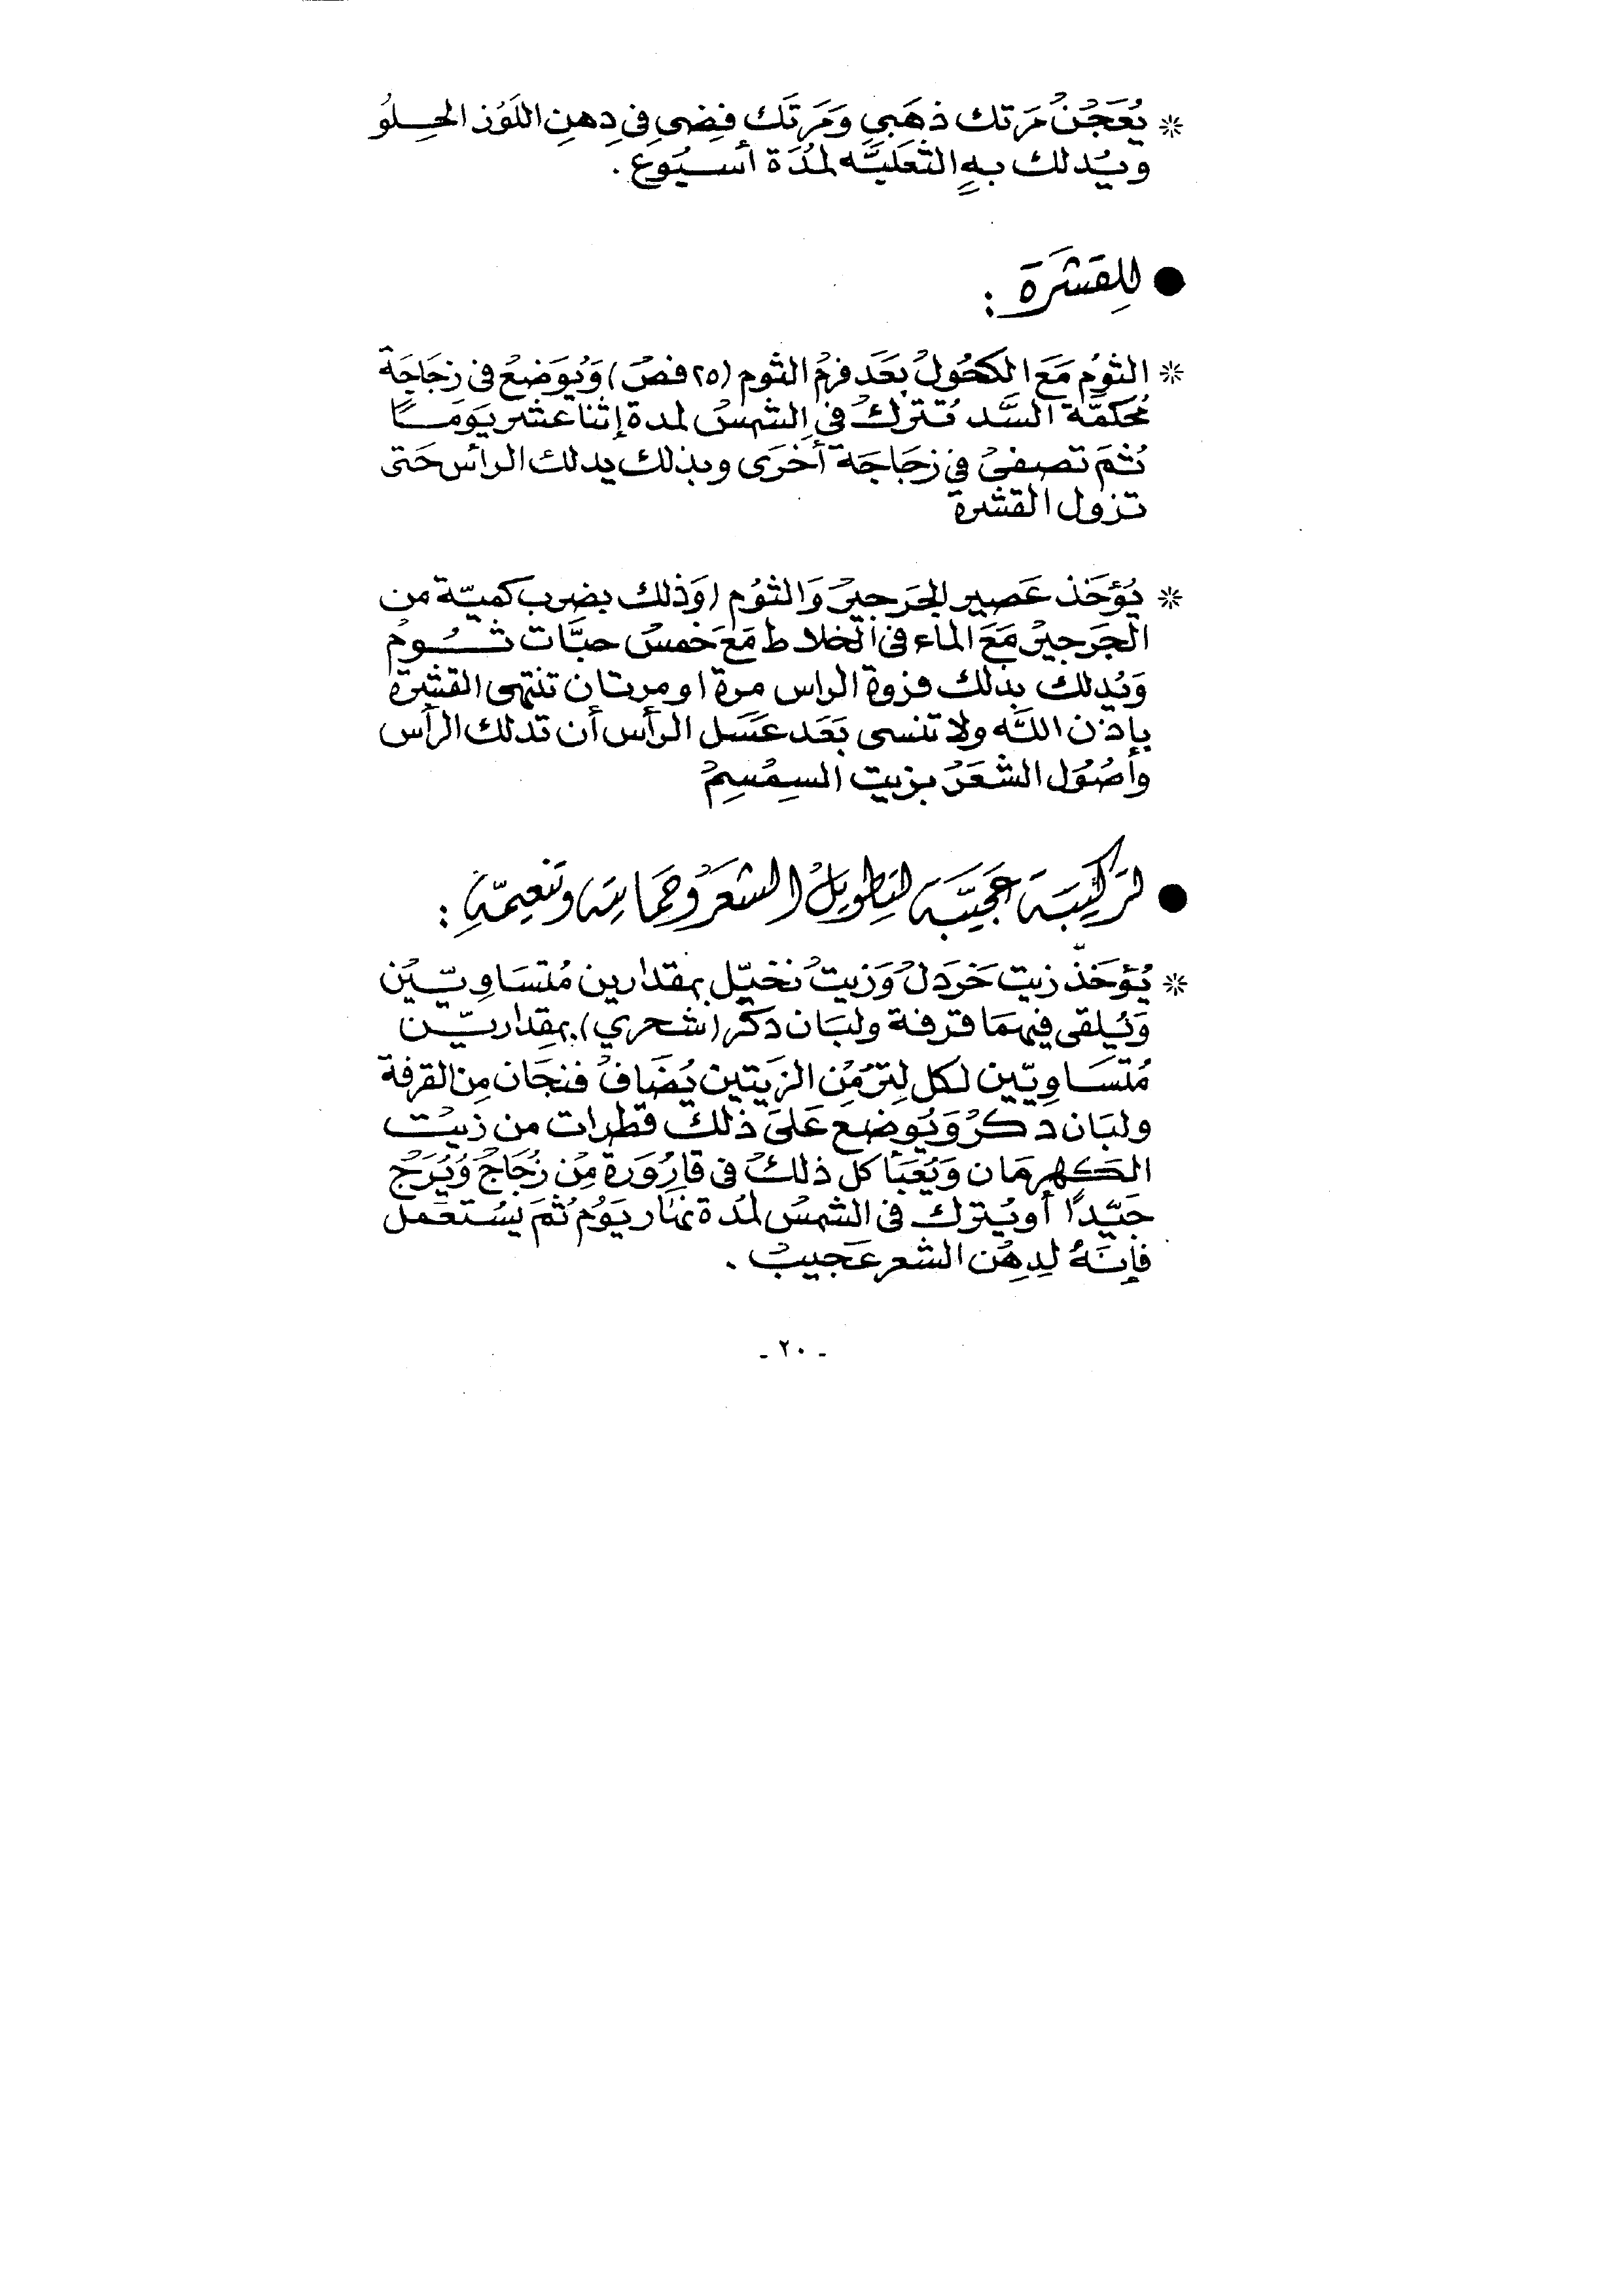 * يُعَجَنُ مَرتك ذهَبيِ وَمَرتَك فِضيِ فِي دِهنِ اللَوز الحِلوُ
ويُدلك بهِ الثعَلبَّه لمُدَة أسبُوع .
● للِقشَرَة :
* الثوُم مَعَ الكحُولْ بعَدَ فرمْ الثوم (٢٥ فصْ) وَيُوَضعْ فى زجَاجَة
مُحكمَّة السَّد تُترَكْ فى الشمسْ لمدة إثنا عشر يَومَاً
ثُمَ تصفىْ فى زجَاجَة أخرَى وبذلك يدلك الرأس حَتى
تزول القشرة
* يُؤخَذ عَصير الجَرجيرْ وَالثوُم (وَذلك بضرب كميّة من
الجَرجيرْ مَعَ الماء فى الخلاط مَعَ خمسْ حبَّات ثُومْ
وَيُدلك بذلك فروة الراس مرة او مرتان تنتهى القشرة
بإذن اللَّه ولا تنسى بَعَد غسَل الرأس أن تدلك الرأس
وأصُوَل الشعَرْ بزيت السِمسِمْ
● تركيبَة عَجيبَّة لتِطويلْ الشعَرْ وحمَايته وتنعيمّهِ :
* يُؤخَذّ زيت خَردَلْ وَزيتْ نخيّل بمقدارين مُتسَاويّيْن
وَيُلقى فيهمَا قرفة ولبَان دكر (شحري) بمقِداريّن
مُتسَاوِيّين لكل لِترْ مِّنْ الزيَتين يُضَافْ فنجَان مِن القرفة
ولبَان دكرْ وَيُوضع عَلىَ ذلك قطرات من زيتْ
الكهرمَان وَيُعَبَأ كل ذلكْ فى قارُوَرة مِنْ زُجَاجْ وَيُرَجْ
جَيّداً أو يُترك فى الشمسْ لمُدة نهَار يَومْ ثُمَ يَسُتعَملْ
فإنَهُ لدِهْن الشعر عَجيبْ .
- ٢٠ -